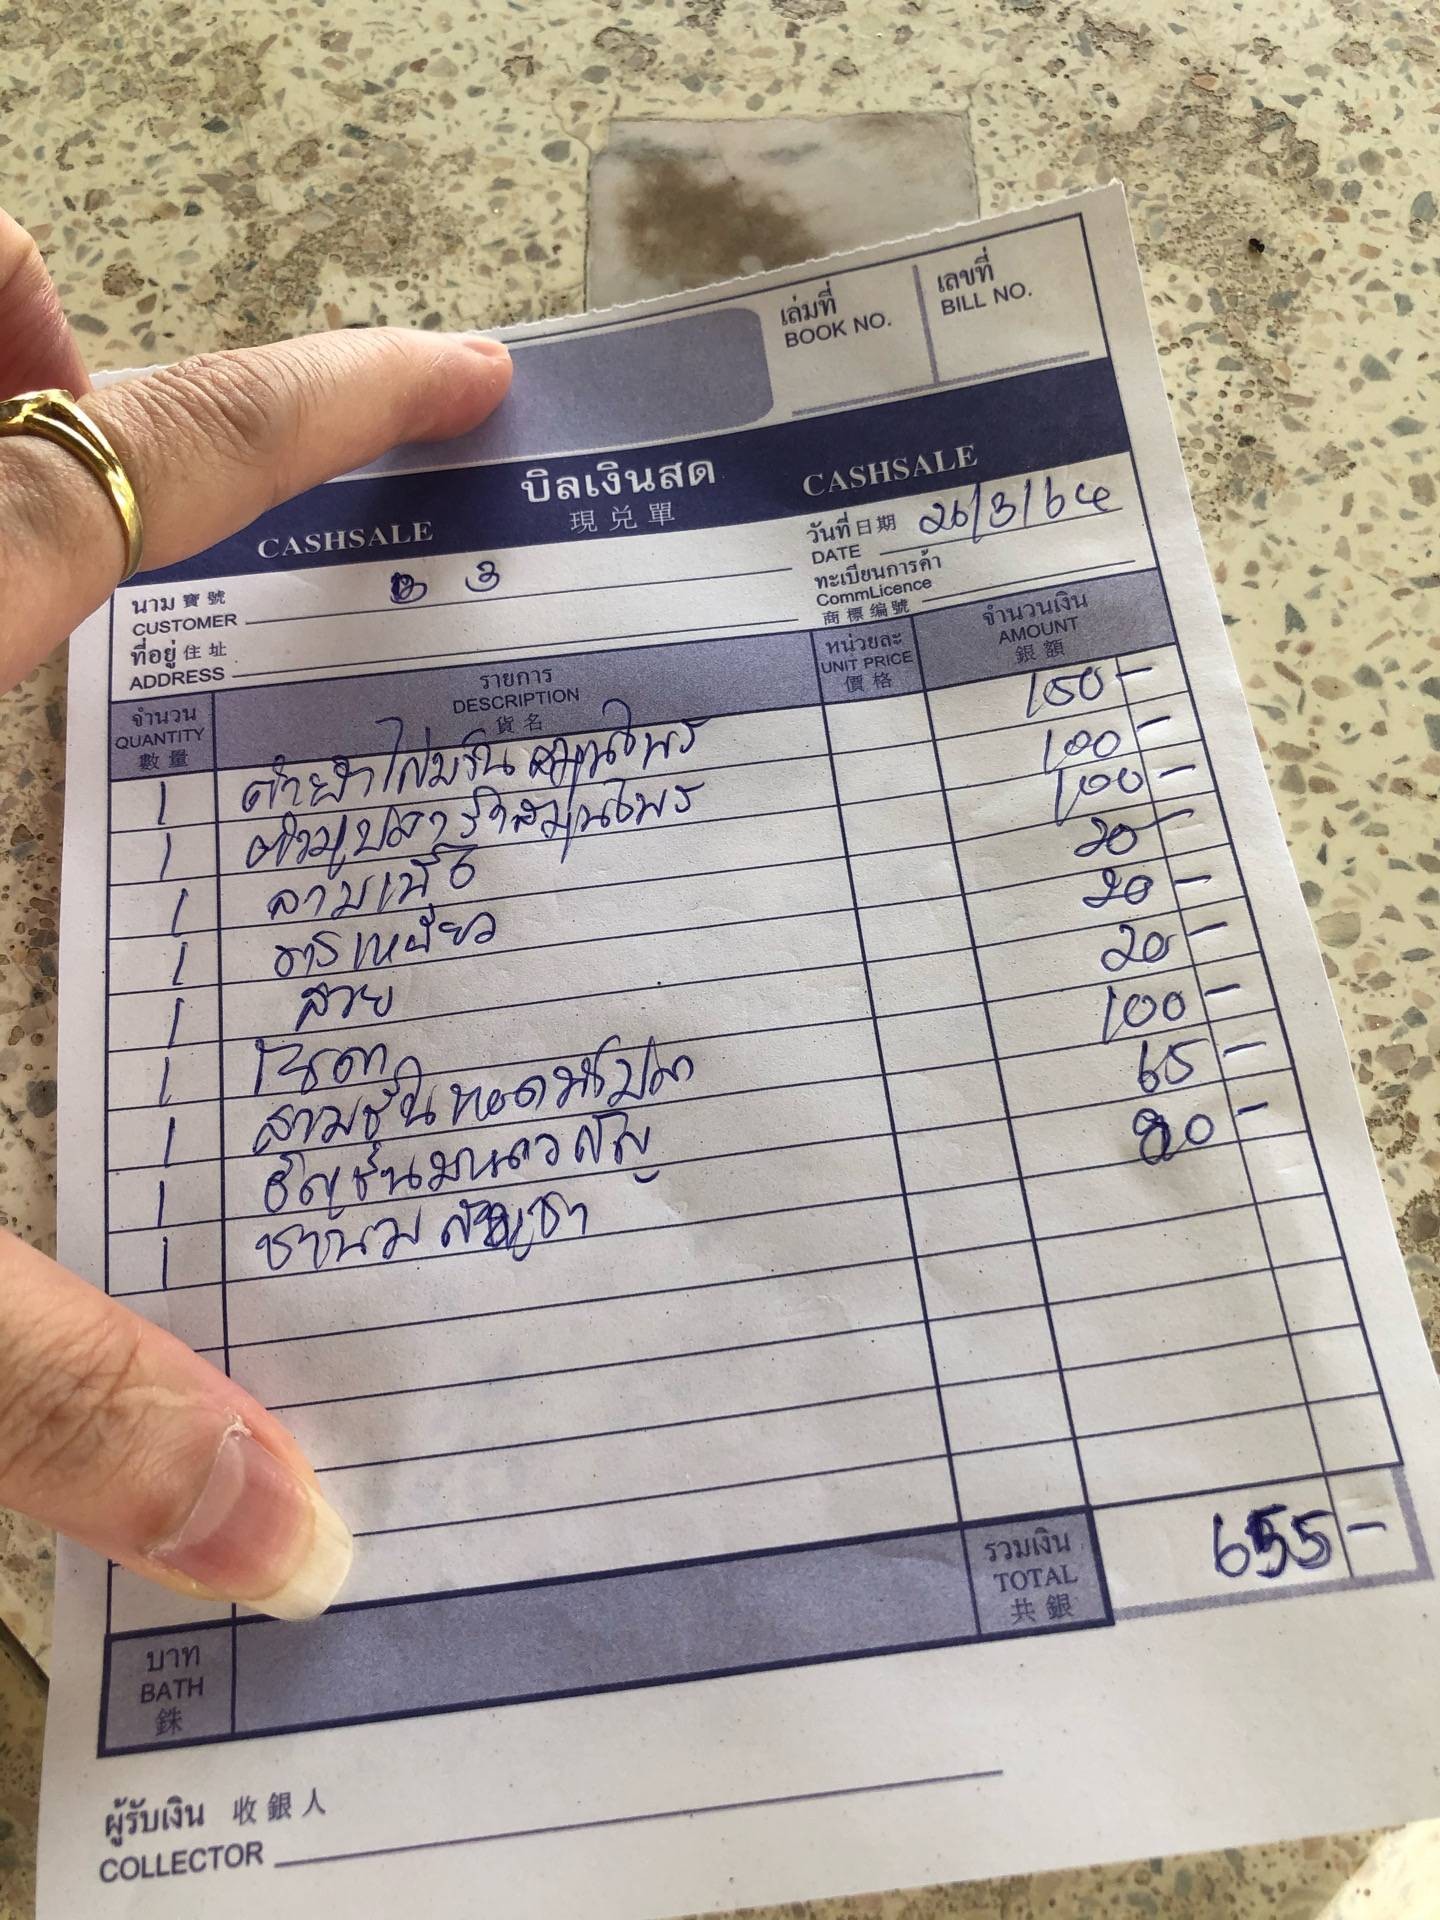 เล่มที่
BOOK NO.
เลขที่
BILL NO.
CASHSALE
บิลเงินสด
現兌單
CASHSALE
นาม 寶號
CUSTOMER
B 3
วันที่ 日期
DATE
26/3/64
ที่อยู่ 住址
ADDRESS
ทะเบียนการค้า
CommLicence
商標编號
จำนวน
QUANTITY
數量
รายการ
DESCRIPTION
貨名
หน่วยละ
UNIT PRICE
價格
จำนวนเงิน
AMOUNT
銀額
1 สมุนไพร 150 -
1 สมุนไพร 100 -
1 ลาบ 100 -
1 ข้าวเหนียว 20 -
1 สวย 20 -
1 โซดา 20 -
1 สามชั้นทอดน้ำปลา 100 -
1 อัญชันมะนาว 65 -
1 ชานม 80 -
รวมเงิน
TOTAL
共銀
655 -
บาท
BATH
銖
ผู้รับเงิน 收銀人
COLLECTOR